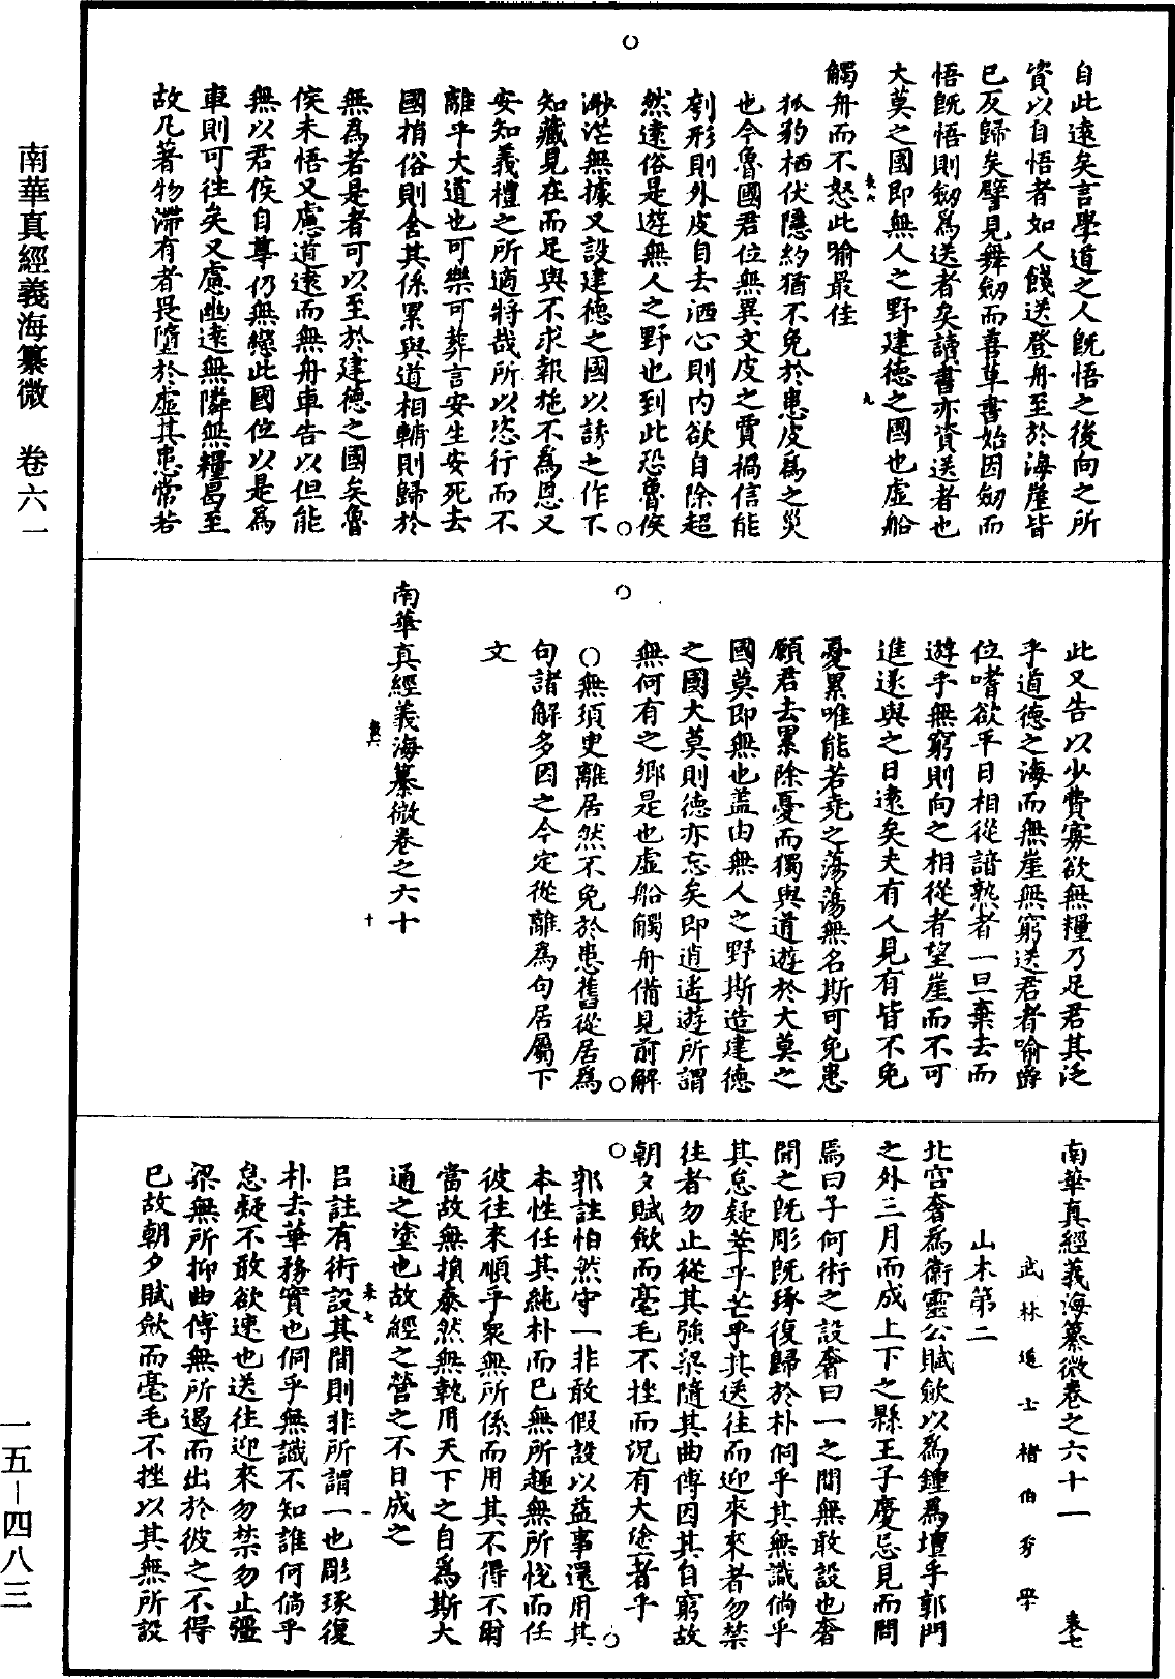 南華真經義海纂微　卷六一
一五—四八三
自此遠矣言學道之人旣悟之後向之所
資以自悟者如人餞送登舟至於海崖皆
已反歸矣譬見舞劒而善草書始因劒而
悟旣悟則劒爲送者矣讀書亦資送者也
大莫之國即無人之野建德之國也虛船
觸舟而不怒此喻最佳
狐豹栖伏隱約猶不免於患皮爲之災
也今魯國君位無異文皮之賈禍信能
刳形則外皮自去洒心則内欲自除超
然遠俗是遊無人之野也到此恐魯侯
渺茫無據又設建德之國以誘之作不
知藏見在而足與不求報施不爲恩又
安知義禮之所適將哉所以恣行而不
離乎大道也可樂可葬言安生安死去
國捎俗則舍其係累與道相輔則歸於
無爲若是者可以至於建德之國矣魯
侯未悟又慮道遠而無舟車告以但能
無以君侯自尊仍無戀此國位以是爲
車則可往矣又慮幽遠無隣無糧曷至
故凡著物滯有者畏墮於虛其患常若
此又告以少費寡欲無糧乃足君其泛
乎道德之海而無崖無窮送君者喻爵
位嗜欲平日相從諳熟者一旦棄去而
遊乎無窮則向之相從者望崖而不可
進送與之日遠矣夫有人見有皆不免
憂累唯能若堯之蕩蕩無名斯可免患
願君去累除憂而獨與道遊於大莫之
國莫即無也蓋由無人之野斯造建德
之國大莫則德亦忘矣即逍遙遊所謂
無何有之鄉是也虛船觸舟備見前解
○無須臾離居然不免於患舊從居爲
句諸解多因之今定從離爲句居屬下
文
南華真經義海纂微卷之六十
十
南華真經義海纂微卷之六十一
武林道士褚伯秀學
山木第二
北宫奢爲衛靈公賦歛以爲鍾爲壇乎郭門
之外三月而成上下之縣王子慶忌見而問
焉曰子何術之設奢曰一之間無敢設也奢
聞之旣彫旣琢復歸於朴侗乎其無識倘乎
其怠疑萃乎芒乎其送往而迎來來者勿禁
往者勿止從其強梁隨其曲傅因其自窮故
朝夕賦歛而毫毛不挫而況有大塗者乎
郭註怕然守一非敢假設以益事還用其
本性任其純朴而已無所趣無所悅而任
彼往來順乎衆無所係而用其不得不爾
當故無損泰然無執用天下之自爲斯大
通之塗也故經之營之不日成之
吕註有術設其間則非所謂一也彫琢復
朴去華務實也侗乎無識不知誰何倘乎
怠疑不敢欲速也送往迎來勿禁勿止彊
梁無所抑曲傅無所遏而出於彼之不得
已故朝夕賦歛而毫毛不挫以其無所設